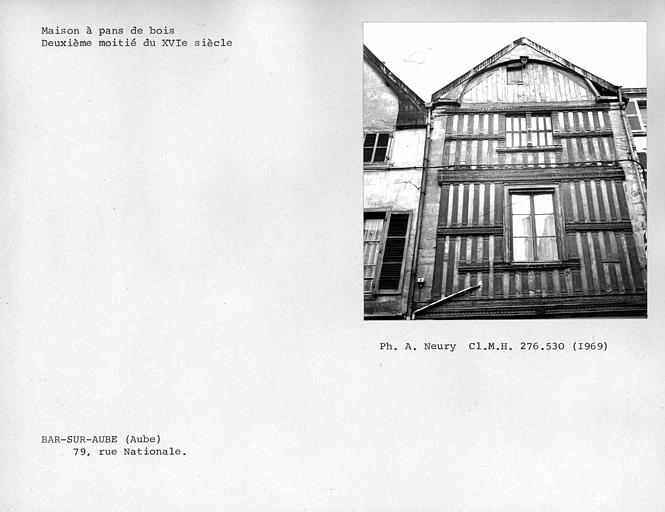 Maison à pans de bois
Deuxième moitié du XVIe siècle
Ph. A. Neury  Cl.M.H. 276.530 (I969)
BAR-SUR-AUBE (Aube)
79, rue Nationale.